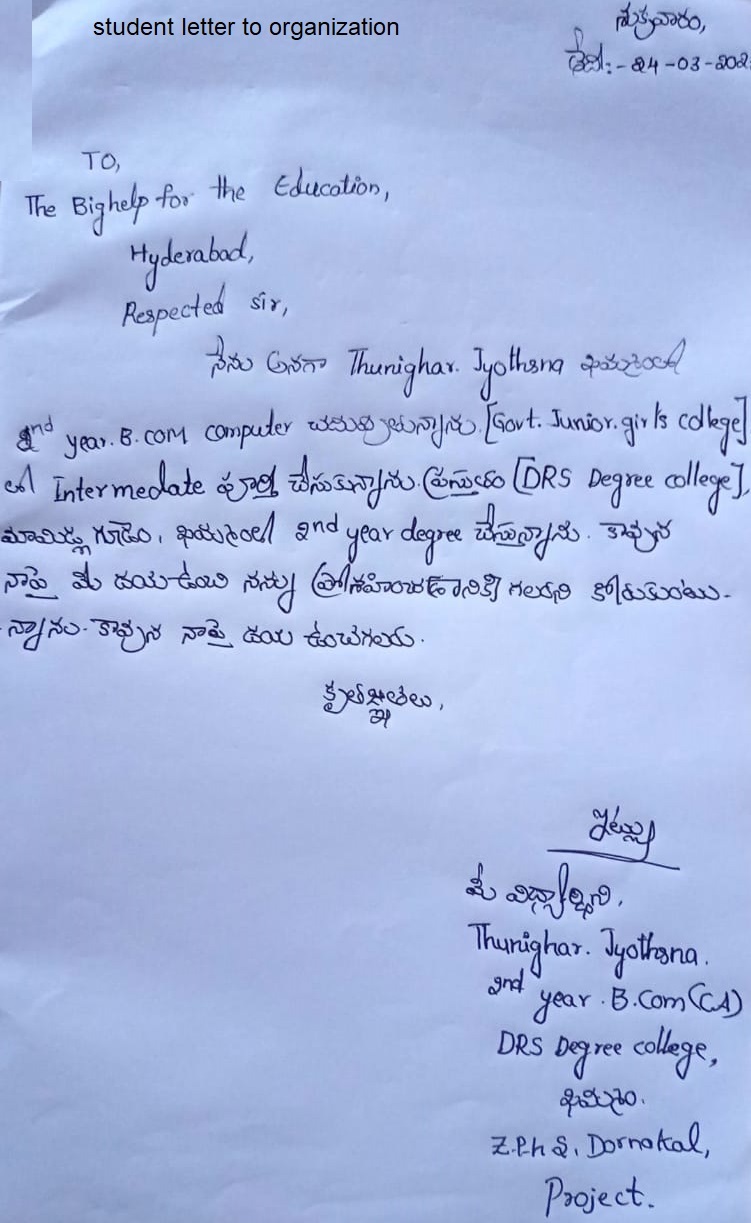 student letter to organization
శుక్రవారం,
తేది:- 24-03-202
TO,
The Bighelp for the Education,
Hyderabad,
Respected sir,
నేను అనగా Thunighar. Jyothsna ఖమ్మంలో
2nd year. B.com computer చదువుతున్నాను. [Govt. Junior. girls college]
లో Intermedate పూర్తి చేసుకున్నాను. ప్రస్తుతం [DRS Degree college],
గూడెం, ఖమ్మంలో 2nd year degree చేస్తున్నాను. కావున
నాపై మీ దయఉంచి నన్ను గలరని కోరుకుంటు-
న్నాను. కావున నాపై దయ ఉంచగలరు.
కృతజ్ఞతలు,
ఇట్లు
మీ విద్యార్థిని,
Thunighar. Jyothsna.
2nd year. B.Com(CA)
DRS Degree college,
ఖమ్మం.
Z.P.h S, Dornakal,
Project.